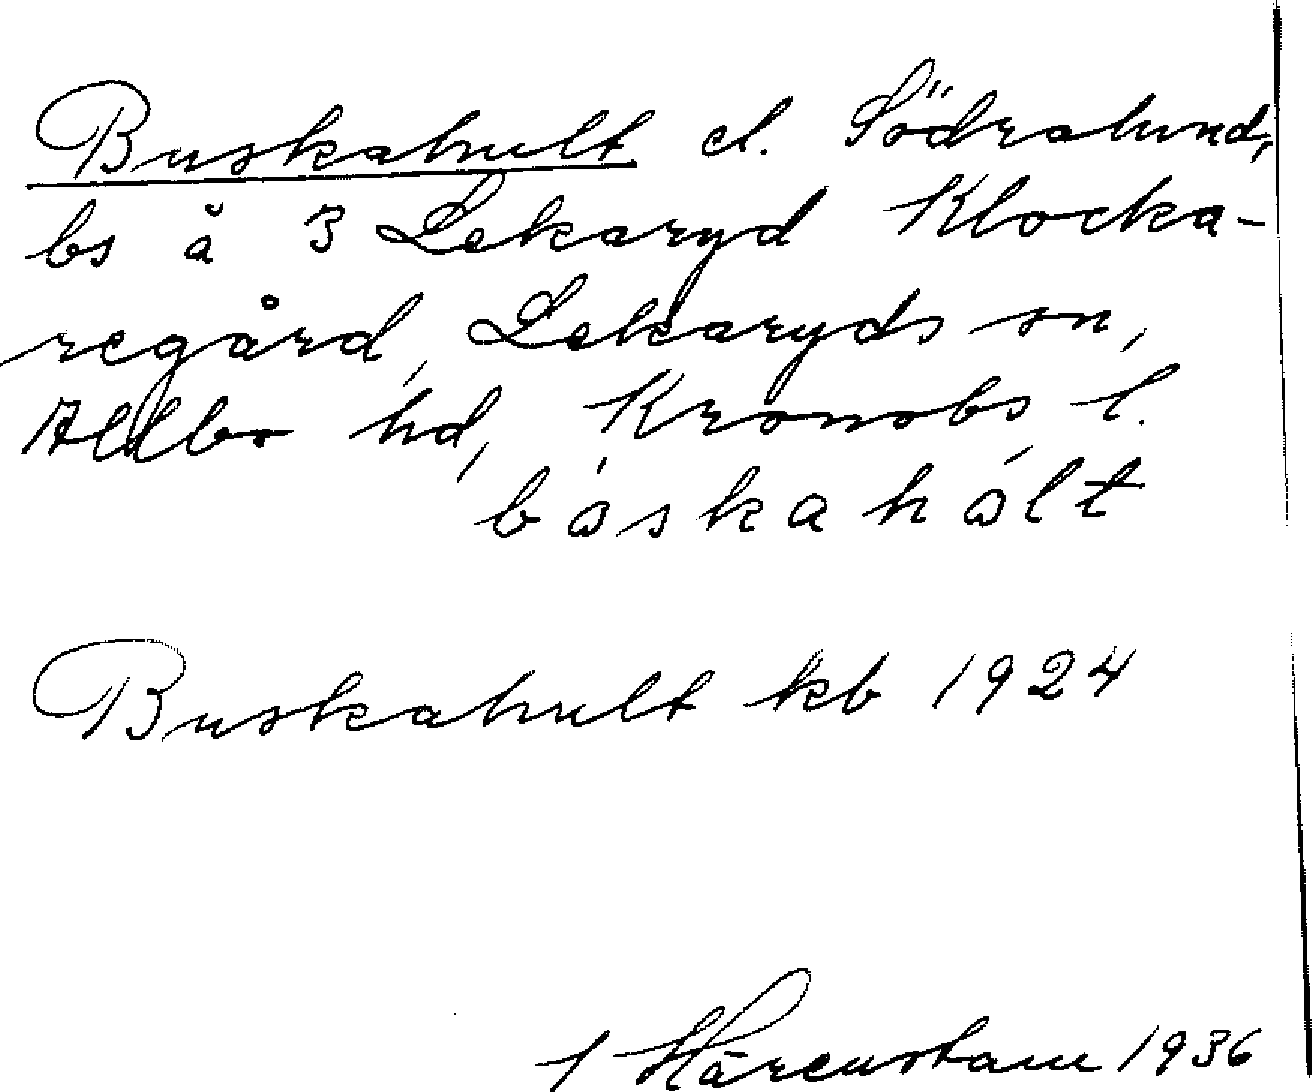 Buskahult el. Södralund,
bs å 3 Lekaryd Klocka-
regård, Lekaryds sn,
Allbo hd, Kronobs l.
båskahålt
Buskahult kb 1924
Hårenstam 1936